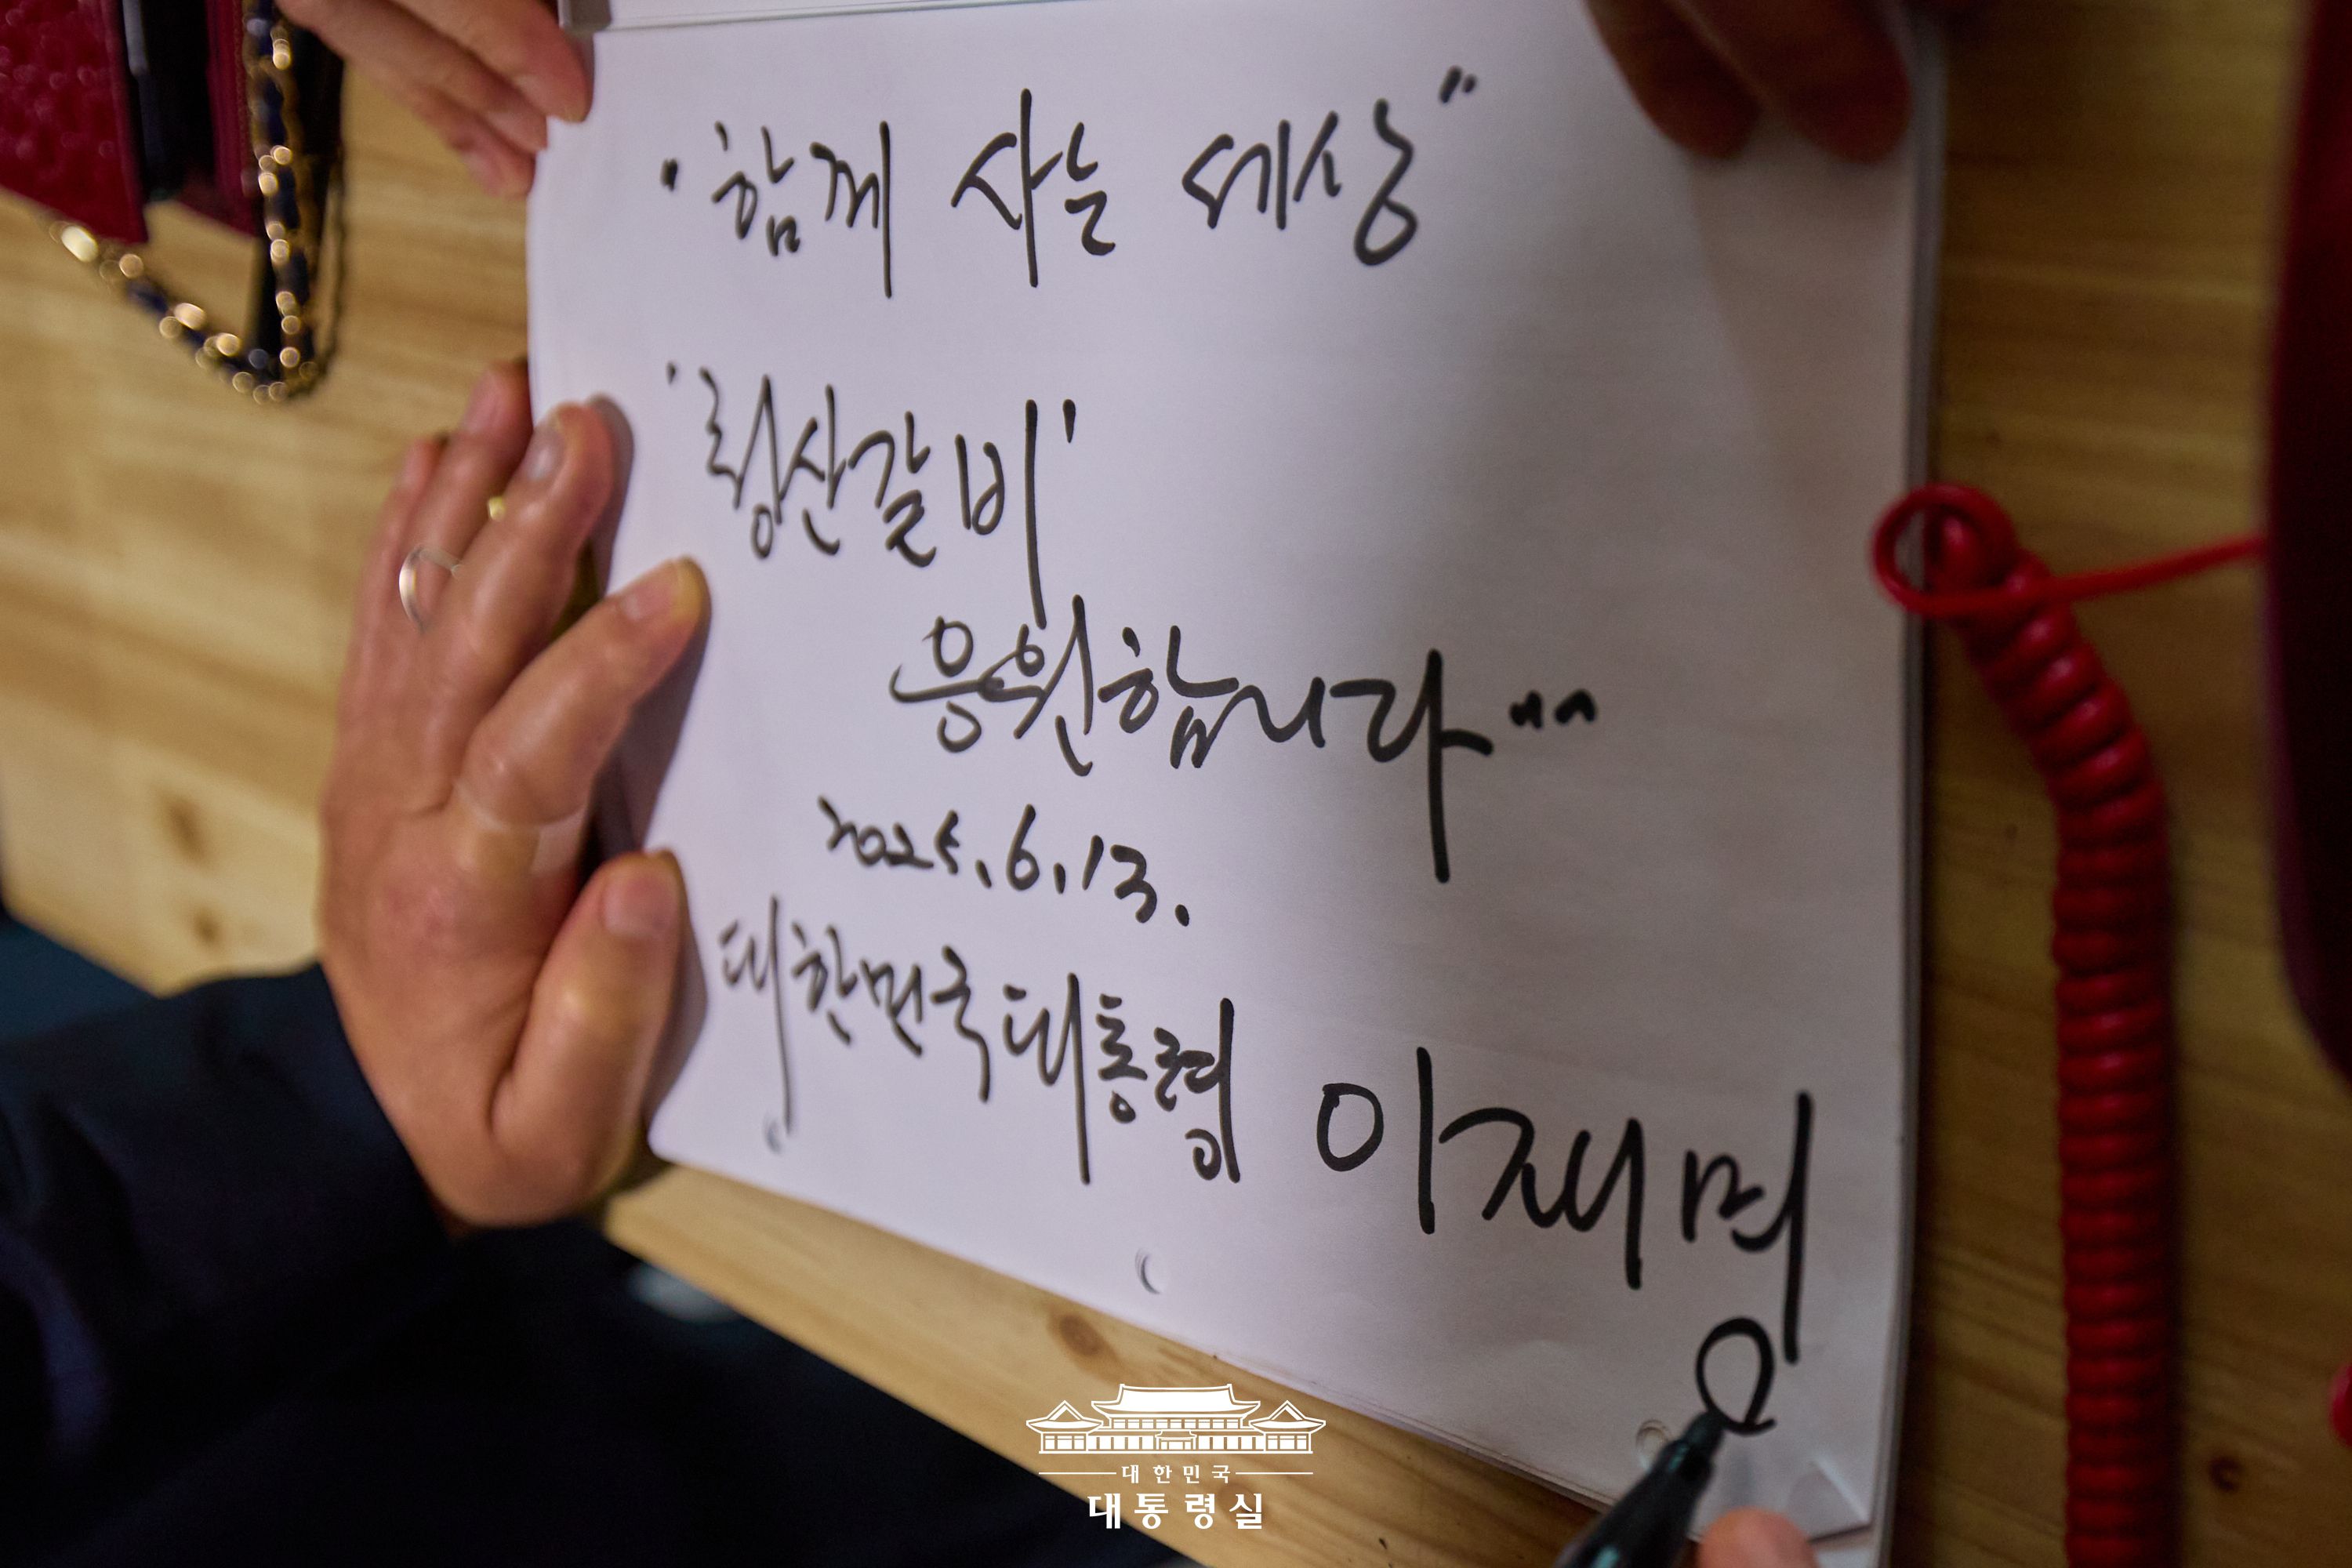 "함께 사는 세상"
'형산갈비'
응원합니다^^
2025.6.13.
대한민국 대통령 이재명
대한민국
대통령실